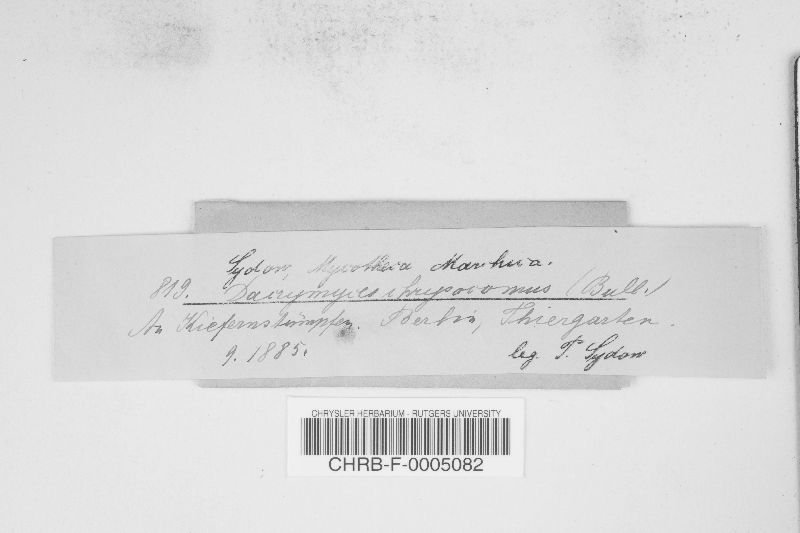 Sydow, Mycotheca Marchica.
819. Dacrymyces chrysocomus (Bull.)
An Kiefernstümpfen. Berlin, Thiergarten.
9. 1885. leg. P. Sydow
CHRYSLER HERBARIUM - RUTGERS UNIVERSITY
CHRB-F-0005082